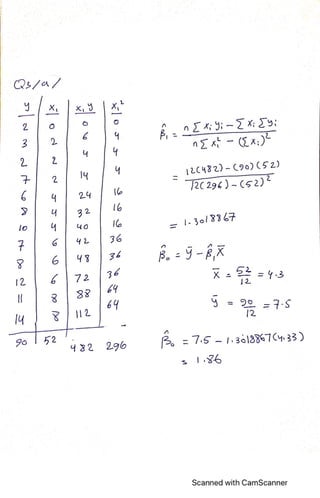 Q3/a/
y x₁ x₁y x₁²
2 0 0 0
3 2 6 4
2 2 4 4
7 2 14 4
6 4 24 16
8 4 32 16
10 4 40 16
7 6 42 36
8 6 48 36
12 6 72 36
11 8 88 64
14 8 112 64
90 52 482 296
β̂₁ = n Σ xᵢ yᵢ − Σ xᵢ Σ yᵢ / n Σ xᵢ² − (Σ xᵢ)²
= 12(482) − (90)(52) / 12(296) − (52)²
= 1.3018867
β̂₀ = ȳ − β̂₁ x̄
x̄ = 52/12 = 4.3
ȳ = 90/12 = 7.5
β̂₀ = 7.5 − 1.3018867(4.33)
= 1.86
Scanned with CamScanner